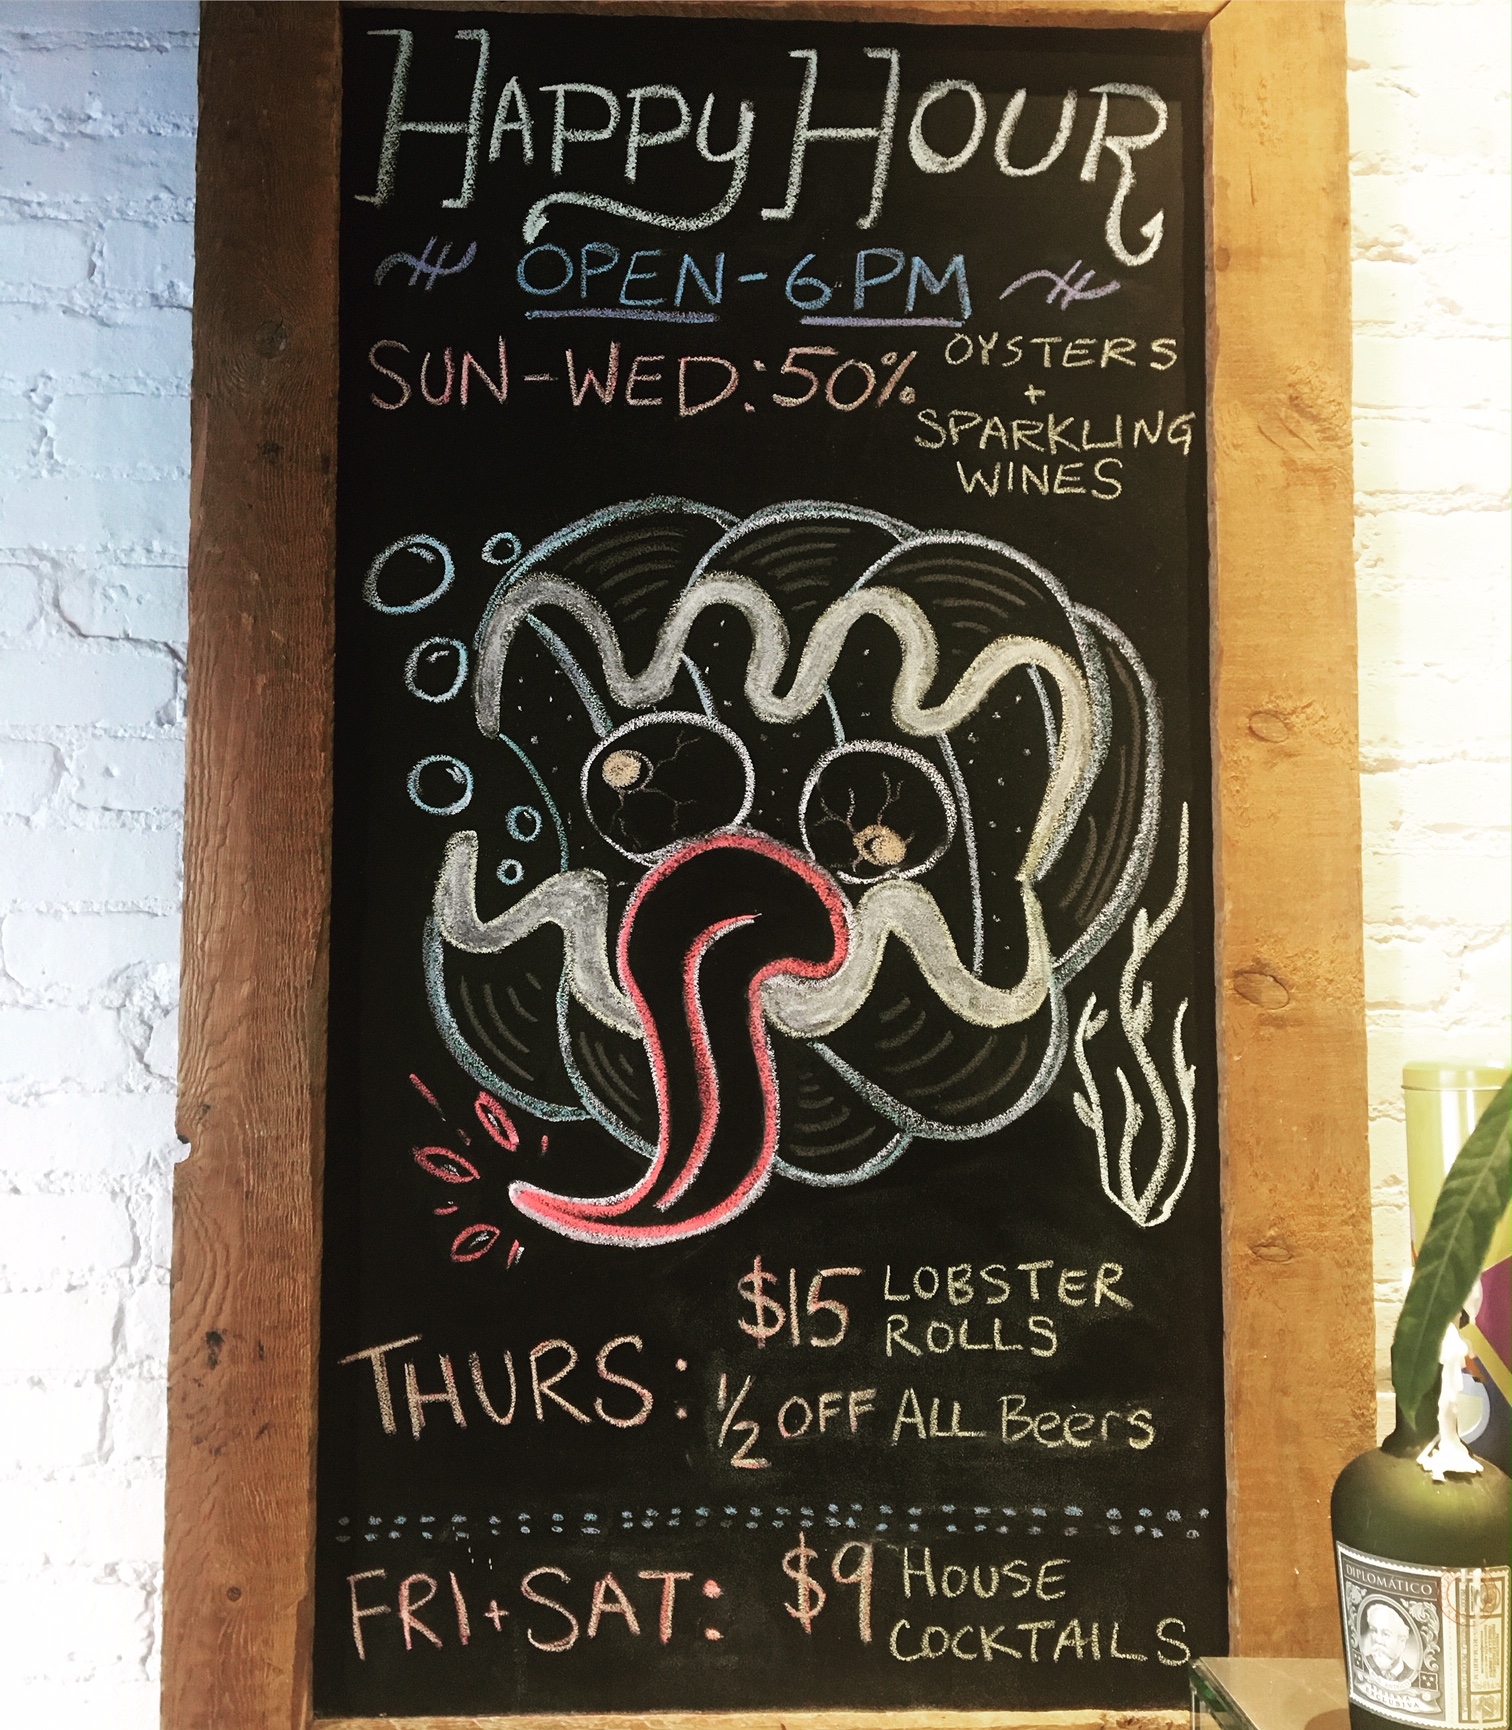 HAPPY HOUR
OPEN-6PM
SUN-WED: 50% OYSTERS
+
SPARKLING
WINES
THURS: $15 LOBSTER
ROLLS
1/2 OFF ALL Beers
FRI+SAT: $9 HOUSE
COCKTAILS
DIPLOMÁTICO